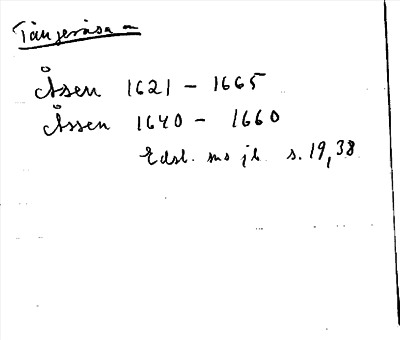 Tångeråsa
Åsen 1621 - 1665
Åssen 1640 - 1660
Edsl. ms jb s. 19, 38